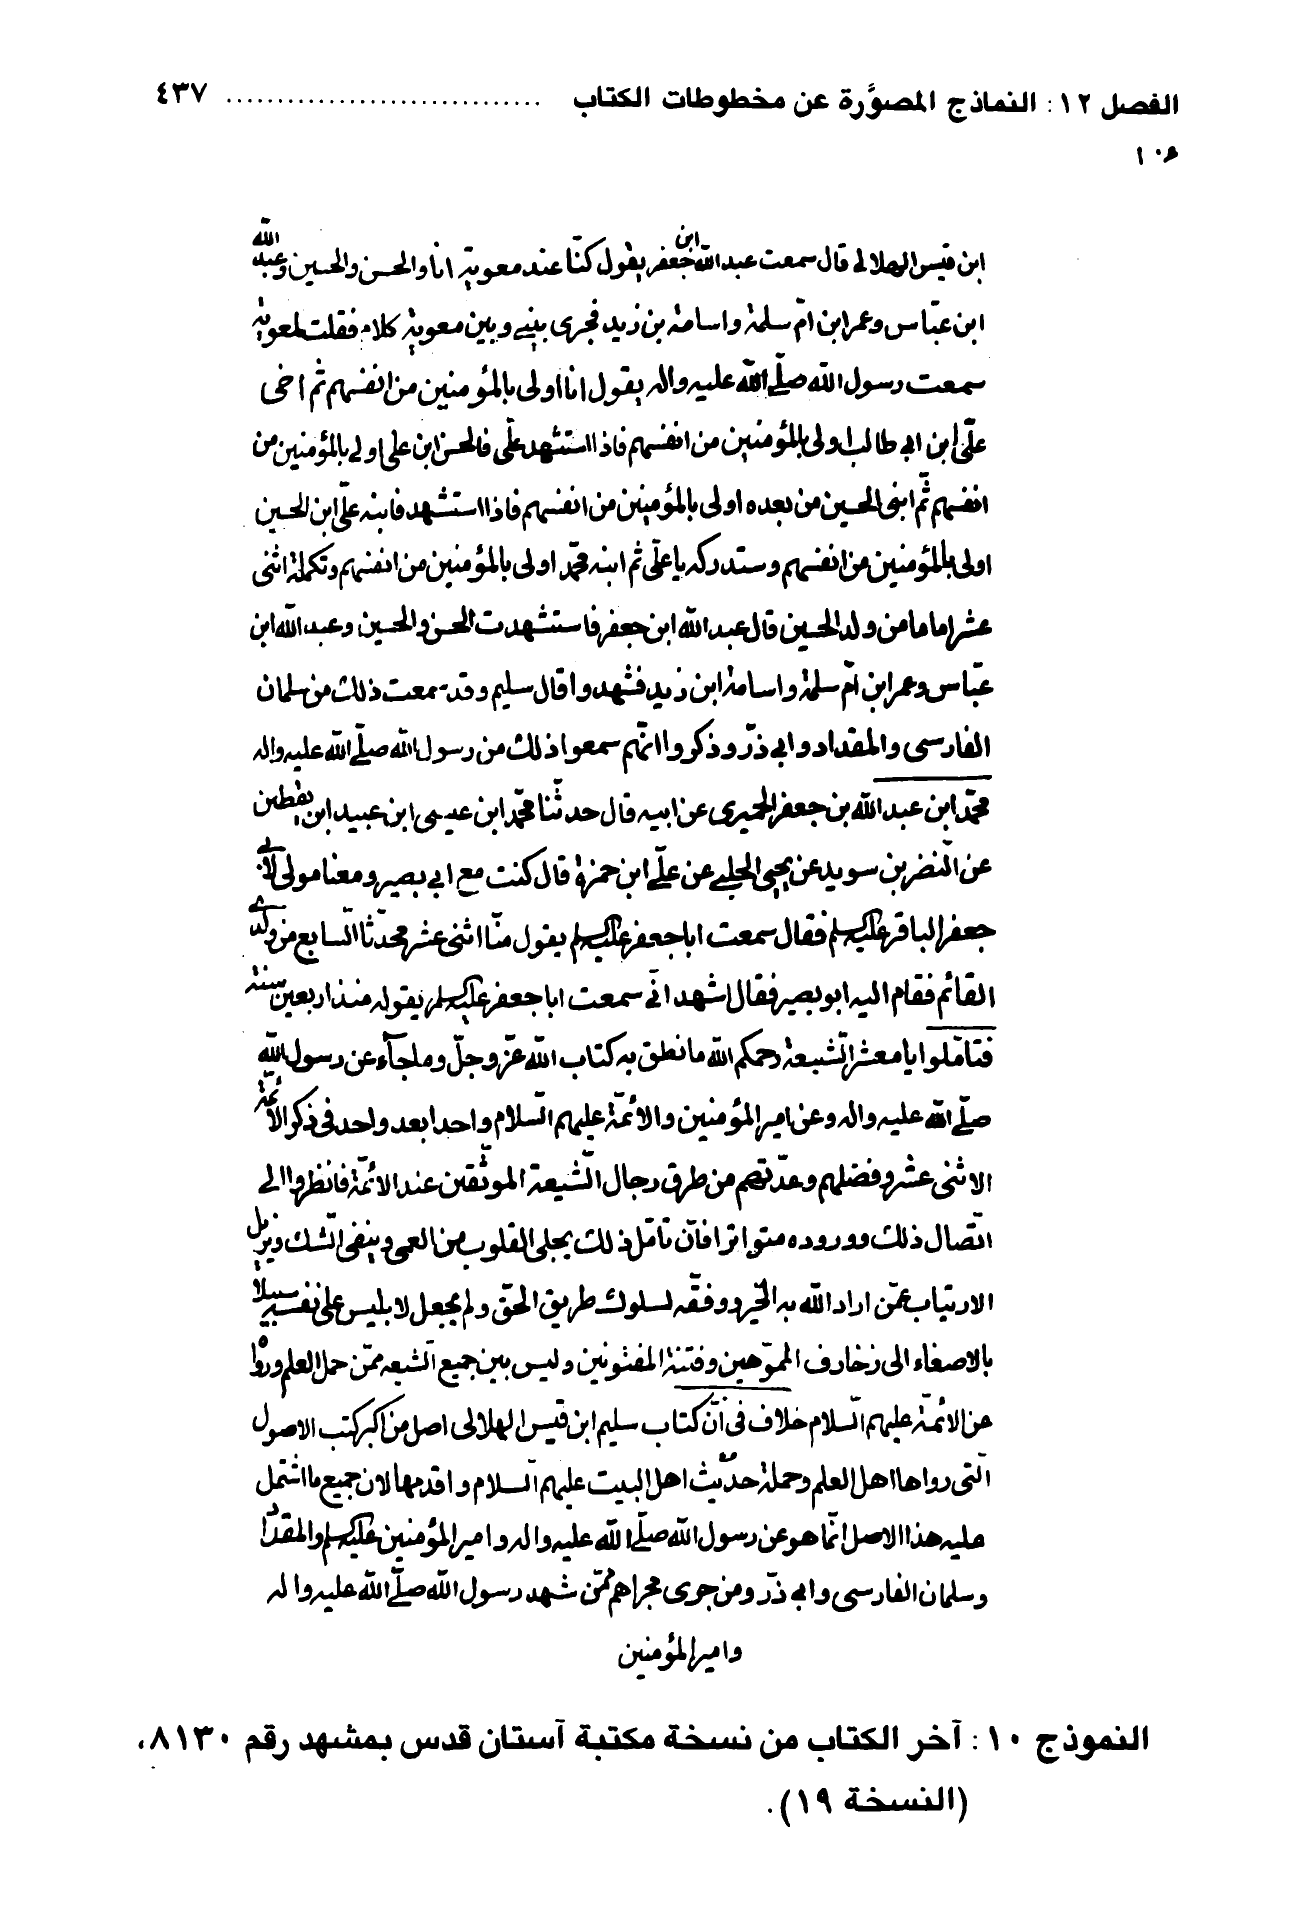 الفصل ١٢: النماذج المصوَّرة عن مخطوطات الكتاب .............................. ٤٣٧
ابن قيس الهلالى قال سمعت عبد الله ابن جعفر يقول كنّا عند معوية انا والحسن والحسين وعبد الله
ابن عبّاس وعمر ابن امّ سلمة واسامة بن زيد فجرى بينى وبين معوية كلام فقلت لمعوية
سمعت رسول الله صلّى الله عليه واله يقول انا اولى بالمؤمنين من انفسهم ثم اخى
علىّ ابن ابى طالب اولى بالمؤمنين من انفسهم فاذا استشهد علىّ فالحسن ابن على اولى بالمؤمنين من
انفسهم ثمّ ابنى الحسين من بعده اولى بالمؤمنين من انفسهم فاذا استشهد فابنه علىّ ابن الحسين
اولى بالمؤمنين من انفسهم وستدركه يا علىّ ثم ابنه محمّد اولى بالمؤمنين من انفسهم وتكملة اثنى
عشر اماما من ولد الحسين قال عبد الله ابن جعفر فاستشهدت الحسن والحسين وعبد الله ابن
عبّاس وعمر ابن امّ سلمة واسامة ابن زيد فشهدوا قال سليم وقد سمعت ذلك من سلمان
الفارسى والمقداد وابى ذرّ وذكروا انّهم سمعوا ذلك من رسول الله صلّى الله عليه واله
محمّد ابن عبد الله بن جعفر الحميرى عن ابيه قال حدثّنا محمّد ابن عيسى ابن عبيد ابن يقطين
عن النّضر بن سويد عن يحيى الحلبى عن علىّ ابن حمزة قال كنت مع ابى بصير ومعنا مولى لابى
جعفر الباقر عليه السلم فقال سمعت ابا جعفر عليه السلم يقول منّا اثنى عشر محدّثا السّابع من ولدى
القائم فقام اليه ابو بصير فقال اشهد انّى سمعت ابا جعفر عليه السلم يقوله منذ اربعين سنة
فتامّلوا يا معشر الشّيعة رحمكم الله ما نطق به كتاب الله عزّ وجلّ وما جآء عن رسول الله
صلّى الله عليه واله وعن امير المؤمنين والائمّة عليهم السّلام واحدا بعد واحد فى ذكر الائمّة
الاثنى عشر وفضلهم وعدّتهم من طرق رجال الشّيعة الموثّقين عند الائمّة فانظروا الى
اتّصال ذلك ووروده متواترا فانّ تامّل ذلك يجلى القلوب من العمى وينفى الشّك ويزيل
الارتياب عمّن اراد الله به الخير ووفّقه لسلوك طريق الحقّ ولم يجعل لابليس على نفسه سبيلا
بالاصغاء الى زخارف المموّهين وفتنة المفتونين وليس بين جميع الشّيعه ممّن حمل العلم ورواه
عن الائمّة عليهم السّلام خلاف فى انّ كتاب سليم ابن قيس الهلالى اصل من اكبر كتب الاصول
الّتى رواها اهل العلم وحملة حديث اهل البيت عليهم السلام واقدمها لان جميع ما اشتمل
عليه هذا الاصل انّما هو عن رسول الله صلّى الله عليه واله وامير المؤمنين عليه السلم والمقداد
وسلمان الفارسى وابى ذرّ ومن جرى مجراهم ممّن شهد رسول الله صلّى الله عليه واله
وامير المؤمنين
النموذج ١٠: آخر الكتاب من نسخة مكتبة آستان قدس بمشهد رقم ٨١٣٠،
(النسخة ١٩).